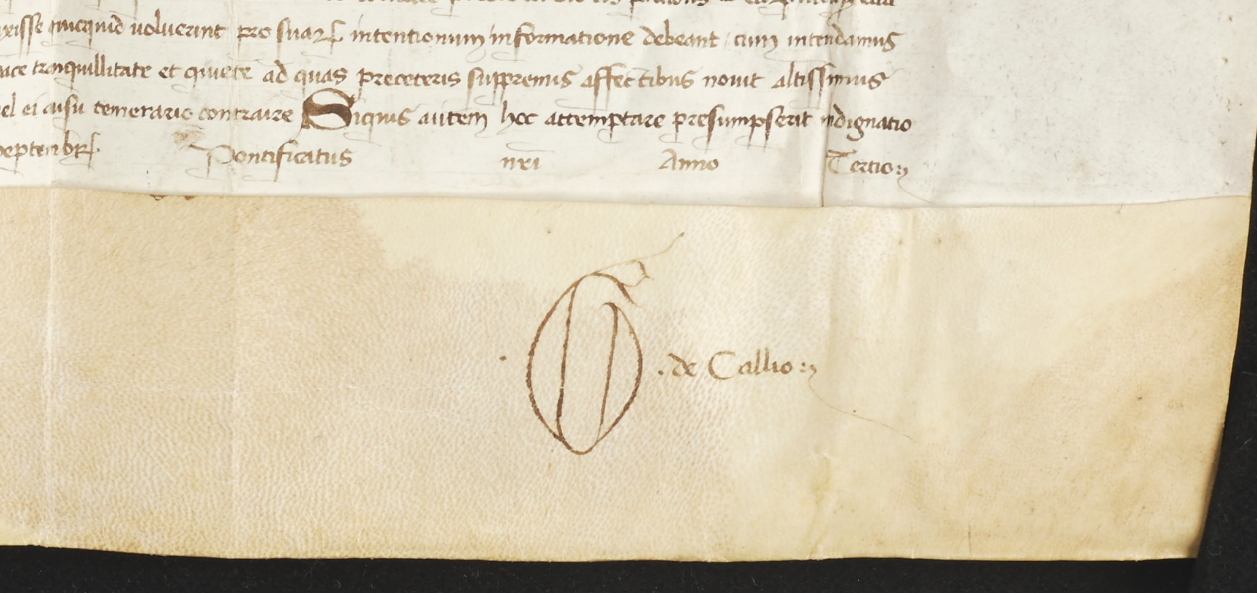 quicquid voluerint pro suaꝝ intentionum informatione debeant cum intendamus
tranquillitate et quiete ad quas preceteris suppremis affectibus novit altissimus
vel ei ausu temerario contraire Siquis autem hoc attemptare presumpserit indignatio
Septembꝝ Pontificatus nr̄i Anno Tertio :)
G . de Callio :)